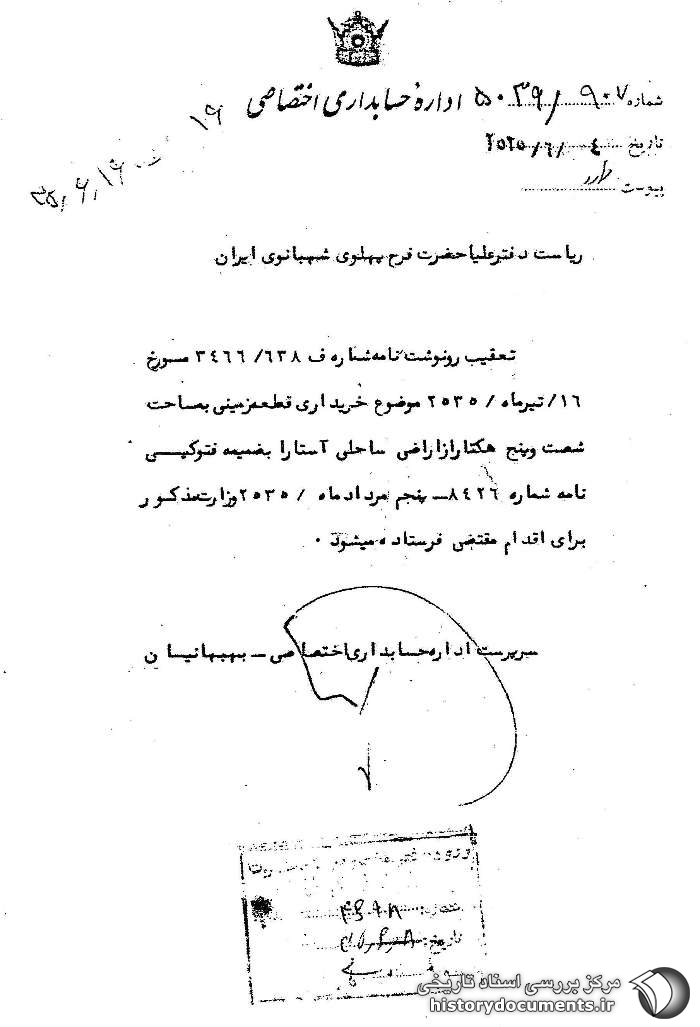 شماره ۵۰۳۹/۹۰۷
ادارهٔ حسابداری اختصاصی
تاریخ ۲۵۳۵/۶/۴
پیوست دارد
۱۶
۳۵,۶,۱۶
ریاست دفترعلیاحضرت فرح پهلوی شهبانوی ایران
تعقیب رونوشت نامه شماره ف ۶۳۸/ ۳۴۶۶ مورخ
۱۶/ تیرماه / ۲۵۳۵ موضوع خریداری قطعه زمینی بمساحت
شصت وپنج هکتارازاراضی ساحلی آستارا بضمیمه فتوکپی
نامه شماره ۸۴۲۶ ـ پنجم مرداد ماه / ۲۵۳۵ وزارت مذکور
برای اقدام مقتضی فرستاده میشود ۰
سرپرست اداره حسابداری اختصاصی ـ بهبهانیان
شماره:
تاریخ:
مرکز بررسی اسناد تاریخی
historydocuments.ir